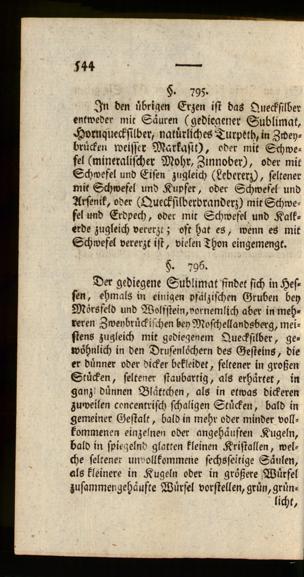 544
§. 795.
In den übrigen Erzen ist das Quecksilber
entweder mit Säuren (gediegener Sublimat,
Hornquecksilber, natürliches Turpeth, in Zwey-
brücken weisser Markasit), oder mit Schwe-
fel (mineralischer Mohr, Zinnober), oder mit
Schwefel und Eisen zugleich (Lebererz), seltener
mit Schwefel und Kupfer, oder Schwefel und
Arsenik, oder (Quecksilberbranderz) mit Schwe-
fel und Erdpech, oder mit Schwefel und Kalk-
erde zugleich vererzt; oft hat es, wenn es mit
Schwefel vererzt ist, vielen Thon eingemengt.
§. 796.
Der gediegene Sublimat findet sich in Hes-
sen, ehmals in einigen pfälzischen Gruben bey
Mörsfeld und Wolfstein, vornemlich aber in meh-
reren Zweybrückischen bey Moschellandsberg, mei-
stens zugleich mit gediegenem Quecksilber, ge-
wöhnlich in den Drusenlöchern des Gesteins, die
er dünner oder dicker bekleidet, seltener in großen
Stücken, seltener staubartig, als erhärtet, in
ganz dünnen Blättchen, als in etwas dickeren
zuweilen concentrisch schaligen Stücken, bald in
gemeiner Gestalt, bald in mehr oder minder voll-
kommenen einzelnen oder angehäuften Kugeln,
bald in spiegelnd glatten kleinen Kristallen, wel-
che seltener unvollkommene sechsseitige Säulen,
als kleinere in Kugeln oder in größere Würfel
zusammengehäufte Würfel vorstellen, grün, grün-
licht,